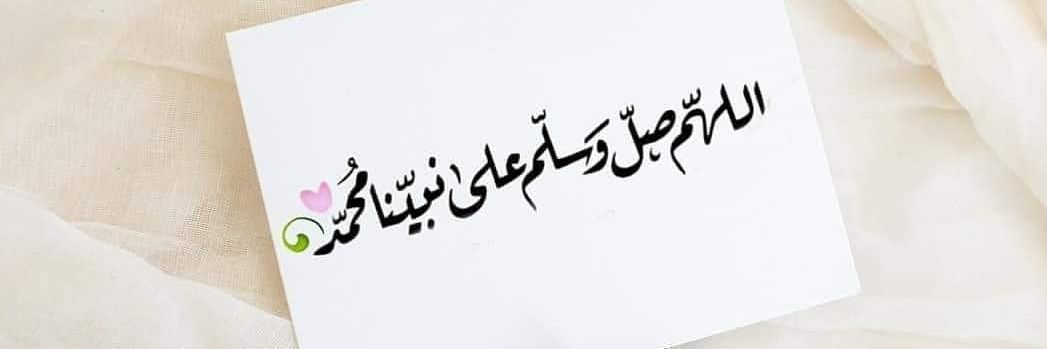 اللهمّ صلّ وَسلّم على نبيّنا مُحمّد